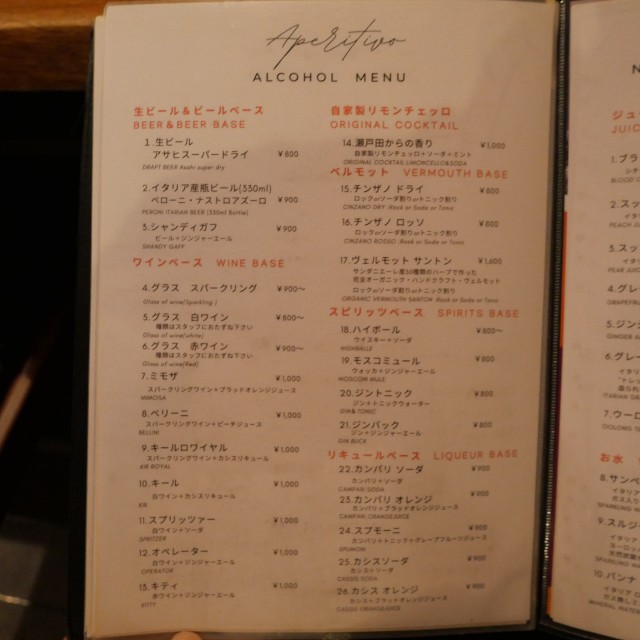 Aperitivo
ALCOHOL MENU
生ビール＆ビールベース
BEER＆BEER BASE
1.生ビール
アサヒスーパードライ ¥800
DRAFT BEER Asahi super dry
2.イタリア産瓶ビール(330ml)
ペローニ・ナストロアズーロ ¥900
PERONI ITARIAN BEER (330ml Bottle)
3.シャンディガフ ¥900
ビール+ジンジャーエール
SHANDY GAFF
ワインベース WINE BASE
4.グラス スパークリング ¥900〜
Glass of wine(Sparkling )
5.グラス 白ワイン ¥800〜
種類はスタッフにおたずね下さい
Glass of wine(white)
6.グラス 赤ワイン ¥900〜
種類はスタッフにおたずね下さい
Glass of wine(Red)
7.ミモザ ¥1,000
スパークリングワイン+ブラッドオレンジジュース
MIMOSA
8.ベリーニ ¥1,000
スパークリングワイン+ピーチジュース
BELLINI
9.キールロワイヤル ¥1,000
スパークリングワイン+カシスリキュール
KIR ROYAL
10.キール ¥1,000
白ワイン+カシスリキュール
KIR
11.スプリッツァー ¥1,000
白ワイン+ソーダ
SPRITZER
12.オペレーター ¥1,000
白ワイン+ジンジャーエール
OPERATOR
13.キティ ¥1,000
赤ワイン+ジンジャーエール
KITTY
自家製リモンチェッロ
ORIGINAL COCKTAIL
14.瀬戸田からの香り ¥1,000
自家製リモンチェッロ+ソーダ+ミント
ORIGINAL COCKTAIL LIMONCELLO&SODA
ベルモット VERMOUTH BASE
15.チンザノ ドライ ¥800
ロックorソーダ割りorトニック割り
CINZANO DRY :Rock or Soda or Tonic
16.チンザノ ロッソ ¥800
ロックorソーダ割りorトニック割り
CINZANO ROSSO :Rock or Soda or Tonic
17.ヴェルモット サントン ¥1,600
サンダニエーレ産30種類のハーブで作った
完全オーガニック・ハンドクラフト・ヴェルモット
ロックorソーダ割りorトニック割り
ORGANIC VERMOUTH SANTON :Rock or Soda or Tonic
スピリッツベース SPIRITS BASE
18.ハイボール ¥800〜
ウイスキー+ソーダ
HIGHBALLE
19.モスコミュール ¥800
ウォッカ+ジンジャーエール
MOSCOW MULE
20.ジントニック ¥800
ジン+トニックウォーター
GIN& TONIC
21.ジンバック ¥800
ジン+ジンジャーエール
GIN BUCK
リキュールベース LIQUEUR BASE
22.カンパリ ソーダ ¥900
カンパリ+ソーダ
CAMPARI SODA
23.カンパリ オレンジ ¥900
カンパリ+ブラッドオレンジジュース
CAMPARI ORANGEJUICE
24.スプモーニ ¥900
カンパリ+トニック+グレープフルーツジュース
SPUMONI
25.カシスソーダ ¥900
カシス+ソーダ
CASSIS SODA
26.カシス オレンジ ¥900
カシス+ブラッドオレンジジュース
CASSIS ORANGEJUICE
N
ジュ
JUIC
1.ブラ
BLOOD
2.スッ
イタリ
PEACH
3.スッ
イタリ
PEAR JUIC
4.グレ
GRAPEFR
5.ジン
GINGER
6.グレ
イタリア
ITARIAN
7.ウーロ
OOLONG T
お水
8.サンペ
イタリア
SPARKLING W
9.スルジ
イタリア
ヨーロッ
SPARKLING WA
10.パンナ
イタリア
MINERAL WATER